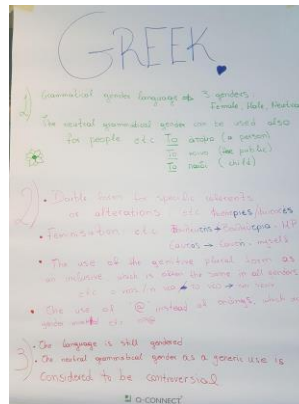 GREEK
1) Grammatical gender language 3 genders
Female, Male, Neutral
The neutral grammatical gender can be used also
for people etc Το άτομο (a person)
Το (public)
Το παιδί (child)
2) • Double form for specific referents
or alterations etc
• Feminisation etc Βουλευτής → Βουλευτρια MP
Εαυτός → myself
• The use of the genitive plural form as
an inclusive which is often the same in all genders
etc
• The use of @ instead of endings, which
gender etc
3) • The language is still gendered
• The neutral grammatical gender as a generic use is
considered to be controversial
Q-CONNECT